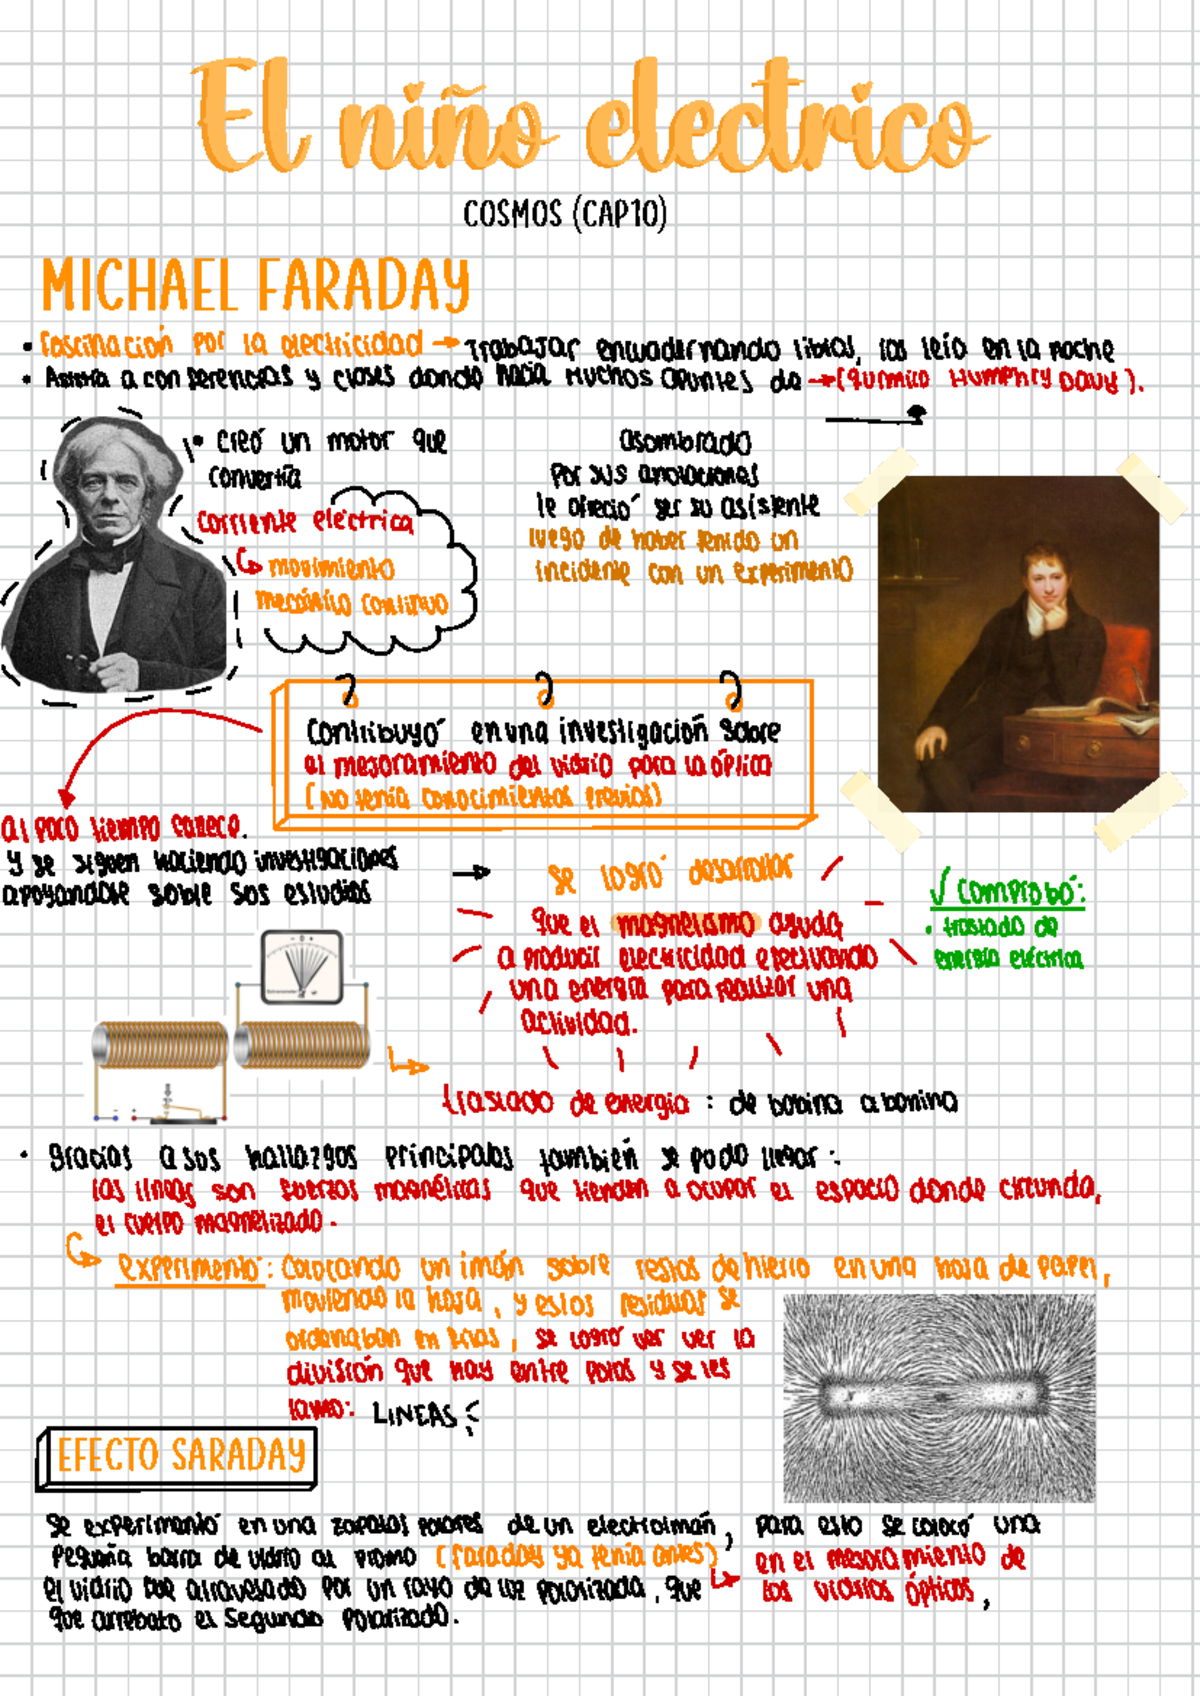 El niño electrico
COSMOS (CAP10)
MICHAEL FARADAY
• fascinación por la electricidad → Trabajar encuadernando libros, los leío en la noche
• Asistía a conferencias y clases donde hacía muchos apuntes de → (químico Humphry Davy).
• creó un motor que
convertía
corriente eléctrica
movimiento
mecánico continuo
asombrado
Por sus anotaciones
le ofreció ser su asistente
luego de haber tenido un
incidente con un experimento
Contribuyó en una investigación sobre
el mejoramiento del vidrio para la óptica
(No tenía conocimientos previos)
al poco tiempo fallece.
y se siguen haciendo investigaciones
apoyandose sobre sus estudios
→ se logró desarrollar
que el magnetismo ayuda
a producir electricidad efectuando
una energía para realizar una
actividad.
√ Comprobó:
• traslado de
energía eléctrica
traslado de energía : de bobina a bonina
• Gracias a sus hallazgos principales también se pudo llegar :
las líneas son fuerzas magnéticas que tienden a ocupar el espacio donde circunda,
el cuerpo magnetizado.
experimento: Colocando un imán sobre restos de hierro en una hoja de papel,
moviendo la hoja, y estos residuos se
ordenaban en líneas, se logró ver ver la
división que hay entre polos y se les
lamo: LINEAS
EFECTO SARADAY
Se experimentó en una zapatas polares de un electroimán, para esto se colocó una
Pequeña barra de vidrio al plomo (faraday ya tenía antes), en el mejoramiento de
el vidrio fue atravesado por un rayo de luz polarizada, que los vidrios ópticos,
que arrebato el Segundo Polarizado.